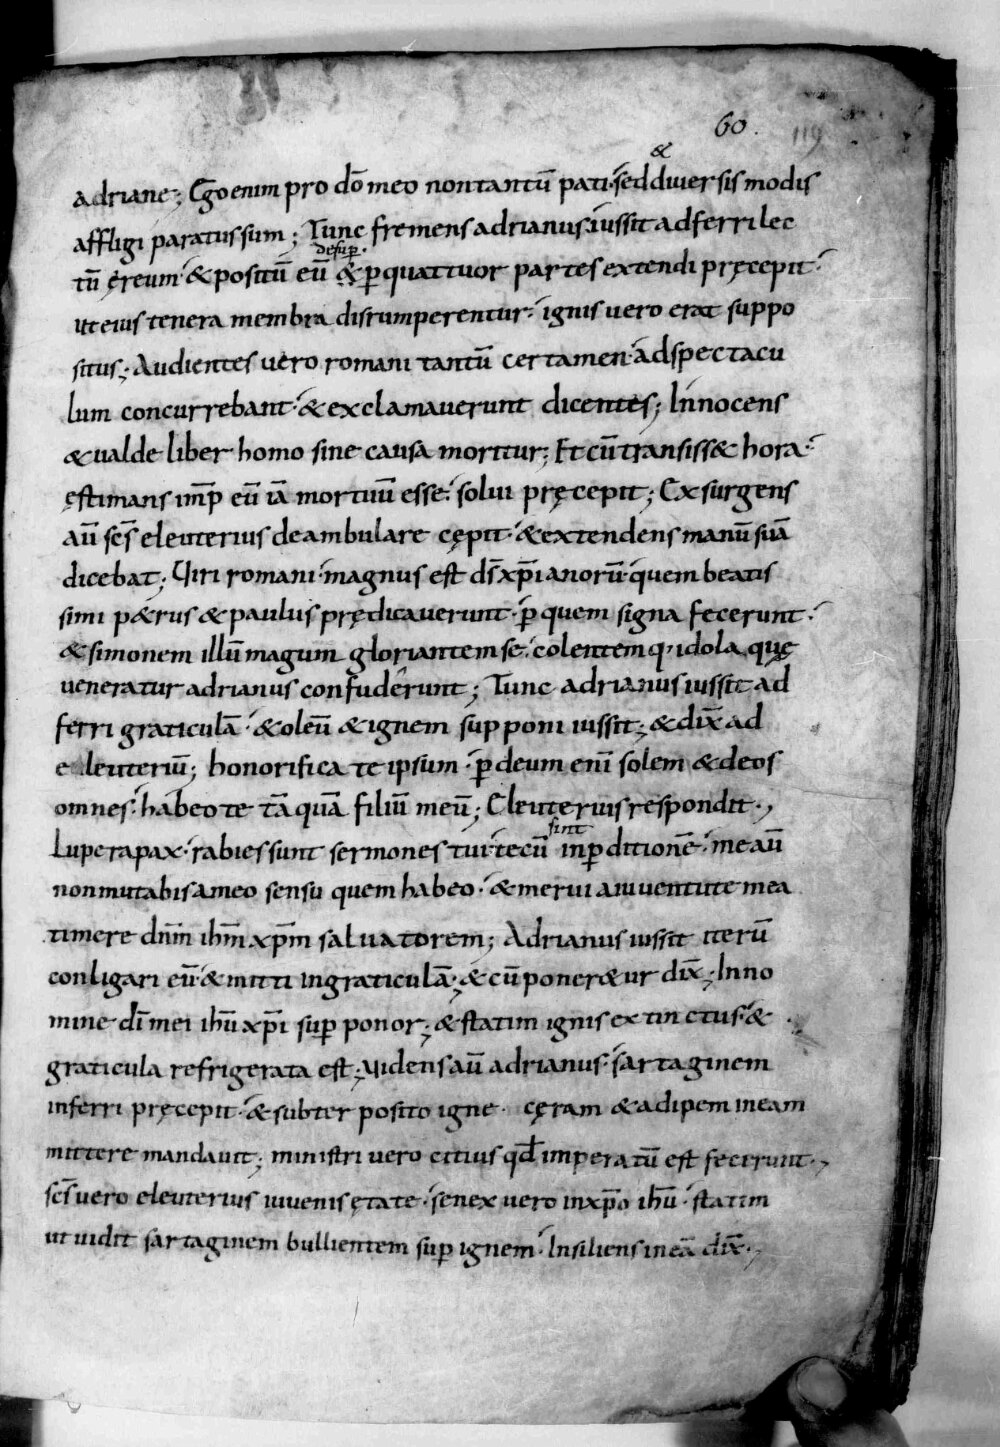 60.
119
&
adriane; Ego enim pro dō meo non tantū pati· sed diuersis modis
affligi paratus sum; Tunc fremens adrianus· iussit adferri lec
desup̄·
tū ęreum· & positū eū & p̄ quattuor partes extendi pręcepit·
ut eius tenera membra disrumperentur· ignis uero erat suppo
situs; Audientes uero romani tantū certamen· ad spectacu
lum concurrebant· & exclamauerunt dicentes; Innocens
& ualde liber homo sine causa moritur; Et cū transiss& hora·
ęstimans imp̄ eū iā mortuū esse· solui pręcepit; Exsurgens
aū scs̄ eleuterius deambulare cępit· & extendens manū suā
dicebat; Uiri romani· magnus est ds̄ xp̄ianorū· quem beatis
simi p&rus & paulus prędicauerunt· p̄ quem signa fecerunt·
& simonem illū magum gloriantem se· colentemq· idola quę
ueneratur adrianus confuderunt; Tunc adrianus iussit ad
ferri graticulā· & oleū & ignem supponi iussit; & dix̄ ad
eleuteriū; honorifica te ipsum· p̄ deum enī solem & deos
omnes· habeo te tāquā filiū meū; Eleuterius respondit·,
sint
Lupe rapax· rabies sunt sermones tui· tecū in p̄ditionē· me aū
non mutabis a meo sensu quem habeo· & merui a iuuentute mea
timere dnm̄ ihm̄ xp̄m saluatorem; Adrianus iussit iterū
conligari eū· & mitti in graticulā; & cū poner&ur dix̄; In no
mine dī mei ihū xp̄i sup̄ponor; & statim ignis extinctus· &
graticula refrigerata est; Uidens aū adrianus· sartaginem
inferri pręcepit· & subter posito igne· cęram & adipem in eam
mittere mandauit; ministri uero citius qd̄ imperatū est fecerunt·,
scs̄ uero eleuterius iuuenis ętate· senex uero in xp̄o ihū· statim
ut uidit sartaginem bullientem sup̄ ignem· Insiliens in eā dix̄·,